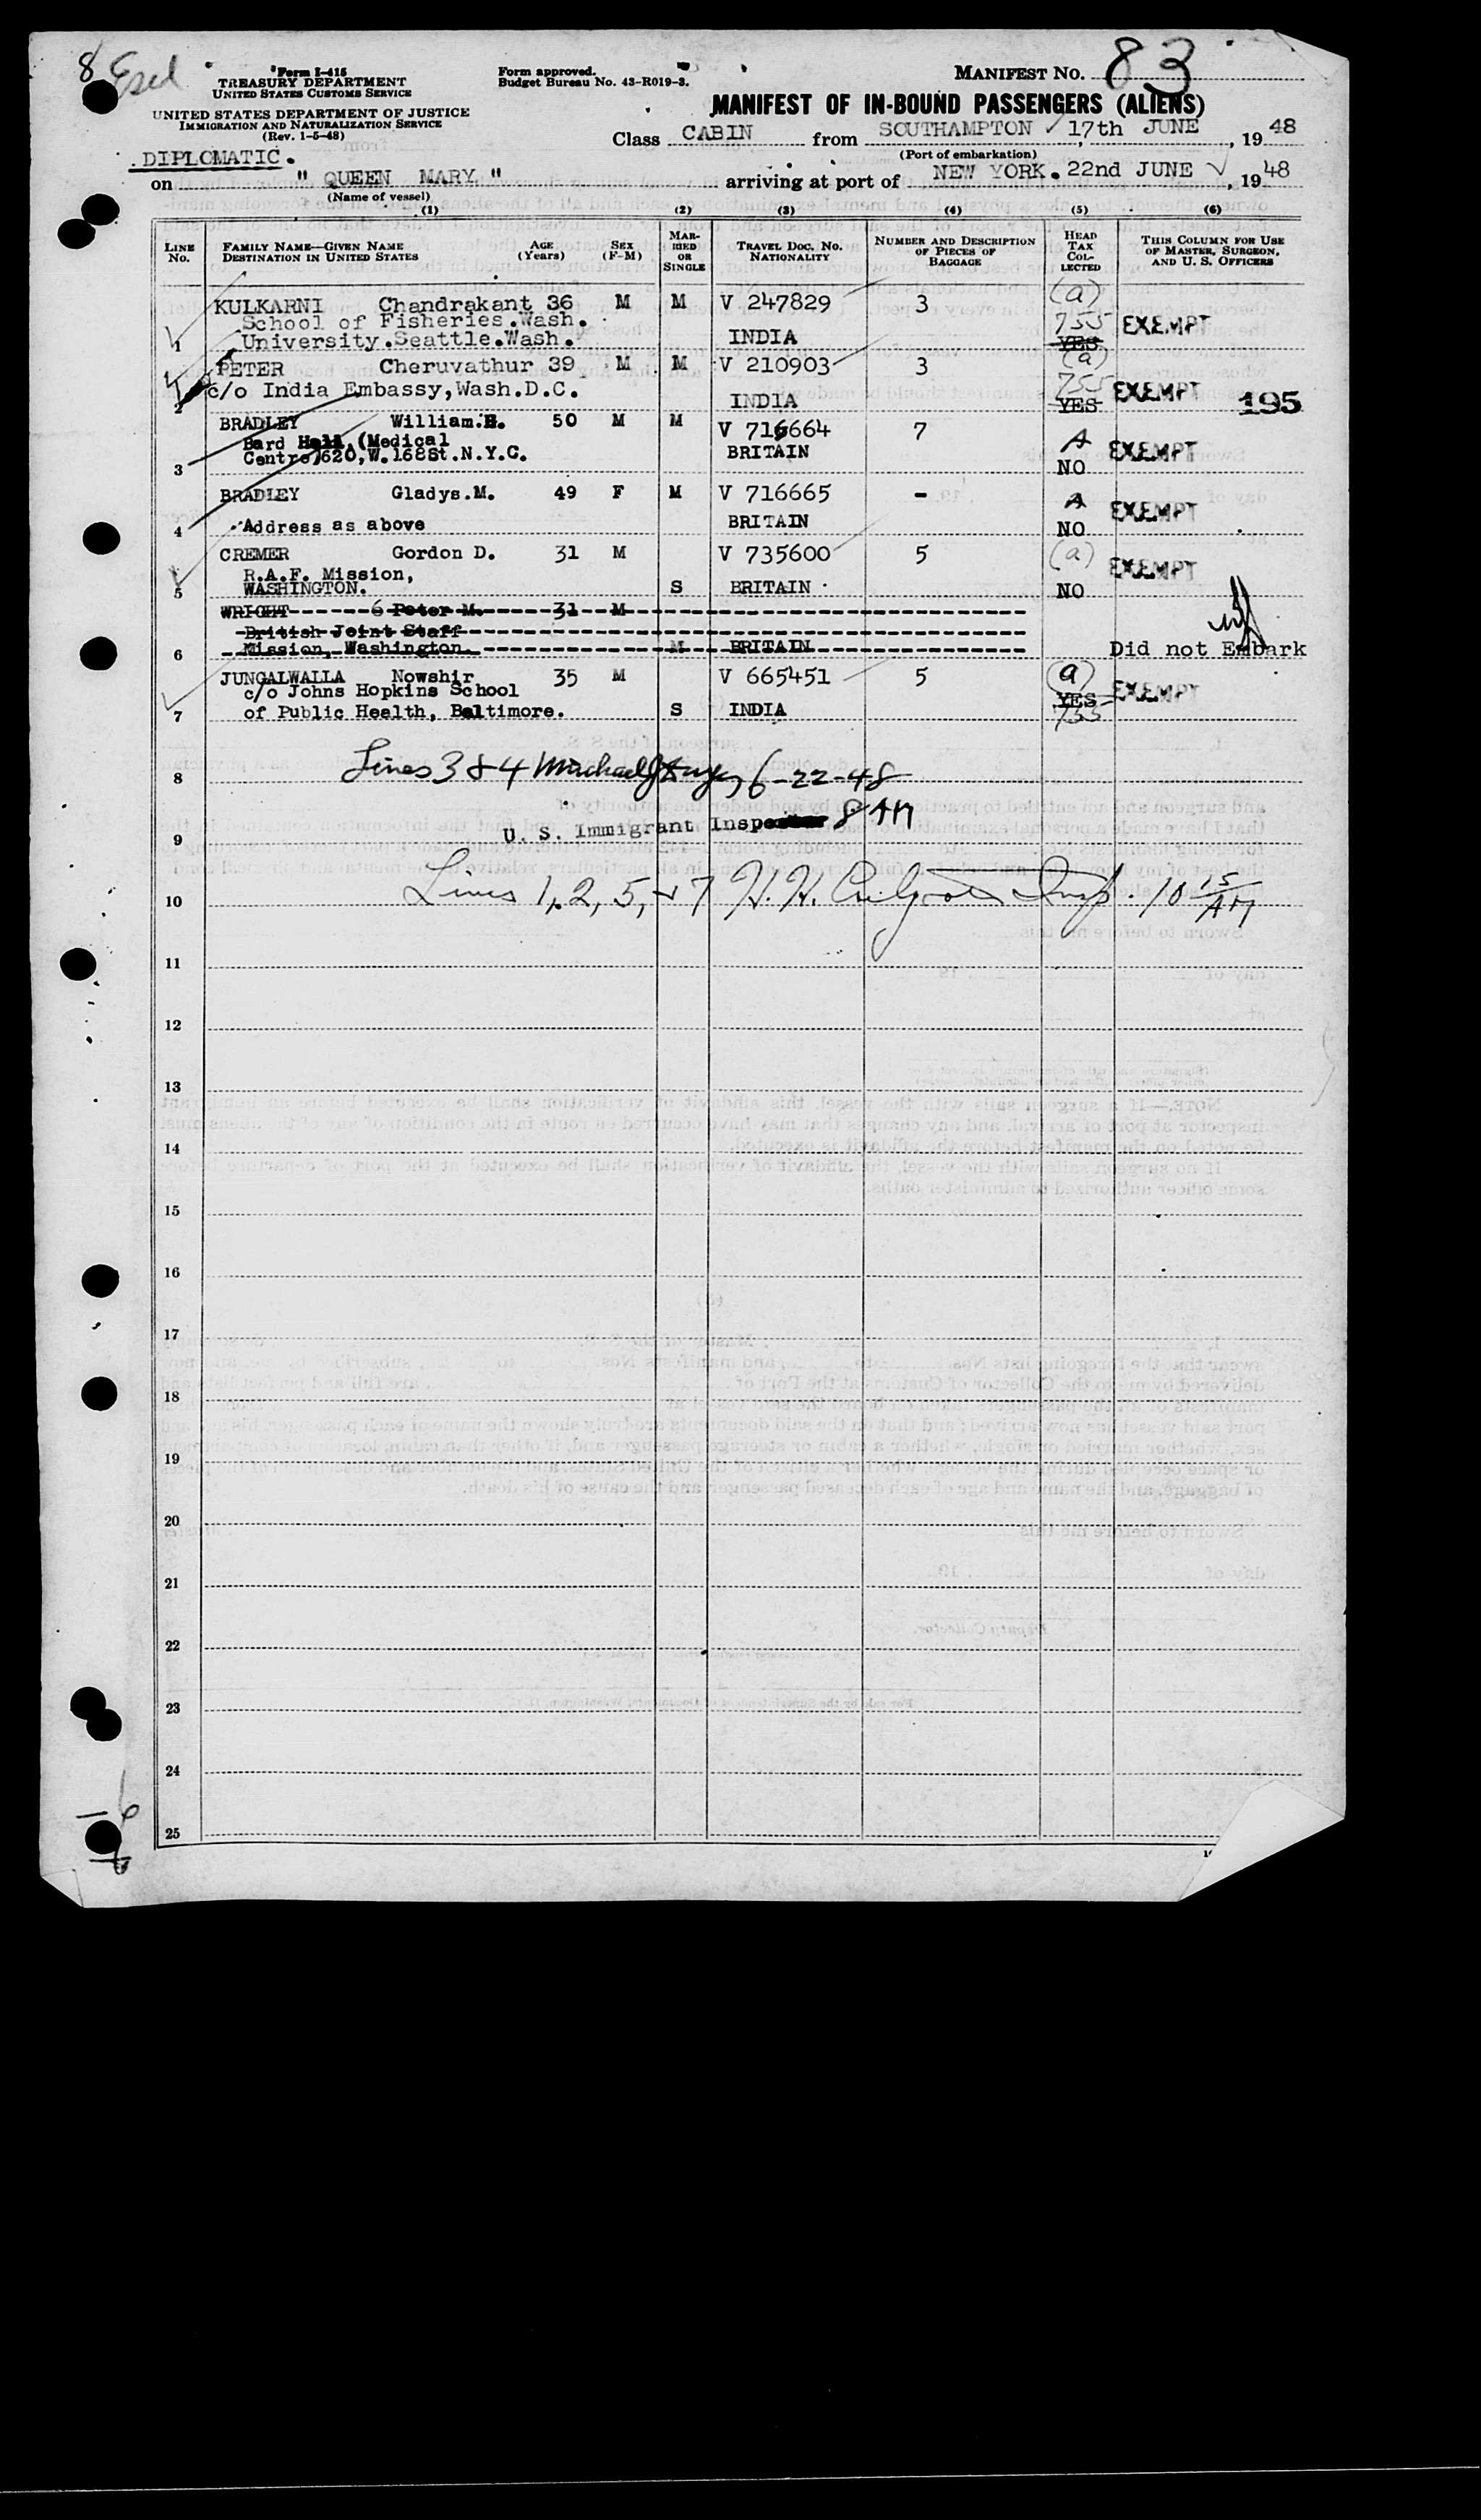 8
Form I-415
TREASURY DEPARTMENT
UNITED STATES CUSTOMS SERVICE
Form approved.
Budget Bureau No. 43-R019-3.
MANIFEST No. 83
UNITED STATES DEPARTMENT OF JUSTICE
IMMIGRATION AND NATURALIZATION SERVICE
(Rev. 1-5-48)
MANIFEST OF IN-BOUND PASSENGERS (ALIENS)
Class CABIN from SOUTHAMPTON ✓ 17th JUNE, 1948
(Port of embarkation)
DIPLOMATIC.
on " QUEEN MARY " arriving at port of NEW YORK. 22nd JUNE ✓, 1948
(Name of vessel)
(1) (2) (3) (4) (5) (6)
LINE No. FAMILY NAME—GIVEN NAME DESTINATION IN UNITED STATES AGE (Years) SEX (F-M) MARRIED OR SINGLE TRAVEL DOC. NO. NATIONALITY NUMBER AND DESCRIPTION OF PIECES OF BAGGAGE HEAD TAX COLLECTED THIS COLUMN FOR USE OF MASTER, SURGEON, AND U. S. OFFICERS
KULKARNI Chandrakant 36 M M V 247829 3 (a)
School of Fisheries.Wash. 755 EXEMPT
1 University.Seattle.Wash. INDIA YES
PETER Cheruvathur 39 M M V 210903 3 (a)
c/o India Embassy,Wash.D.C. 755 EXEMPT
2 INDIA YES 195
BRADLEY William.H. 50 M M V 716664 7
Bard Hall,(Medical A EXEMPT
3 Centre)620,W.168St.N.Y.C. BRITAIN NO
BRADLEY Gladys.M. 49 F M V 716665 - A EXEMPT
4 Address as above BRITAIN NO
CREMER Gordon D. 31 M V 735600 5 (a) EXEMPT
R.A.F. Mission,
5 WASHINGTON. S BRITAIN NO
WRIGHT 6 Peter M. 31 M
British Joint Staff
6 Mission, Washington. M BRITAIN Did not Embark
JUNGALWALLA Nowshir 35 M V 665451 5 (a)
c/o Johns Hopkins School YES EXEMPT
7 of Public Health, Baltimore. S INDIA 755
8 Lines 3 & 4 6-22-48
9 U. S. Immigrant Inspector 8 AM
10 Lines 1, 2, 5, + 7 H. H. Insp. 10 15 AM
11
12
13
14
15
16
17
18
19
20
21
22
23
24
25